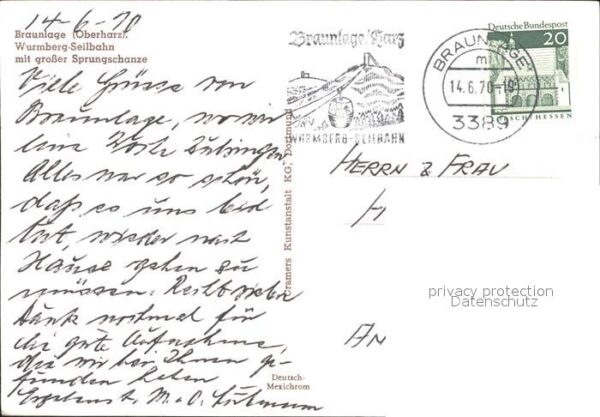 14-6-70
Braunlage (Oberharz)
Wurmberg-Seilbahn
mit großer Sprungschanze
Viele Grüsse von
Braunlage, wo wir
eine Woche
Alles war so schön,
daß es uns leid
tut, wieder nach
Hause gehen zu
müssen. Recht
Dank nochmal für
die gute Aufnahme,
die wir bei Ihnen ge-
funden haben
M. + O.
Cramers Kunstanstalt KG, Dortmund
Deutsch-
Mexichrom
Braunlage/Harz
WURMBERG-SEILBAHN
BRAUNLAGE
m
14.6.70-
3389
Deutsche Bundespost
20
HESSEN
HERRN & FRAU
H
AN
privacy protection
Datenschutz